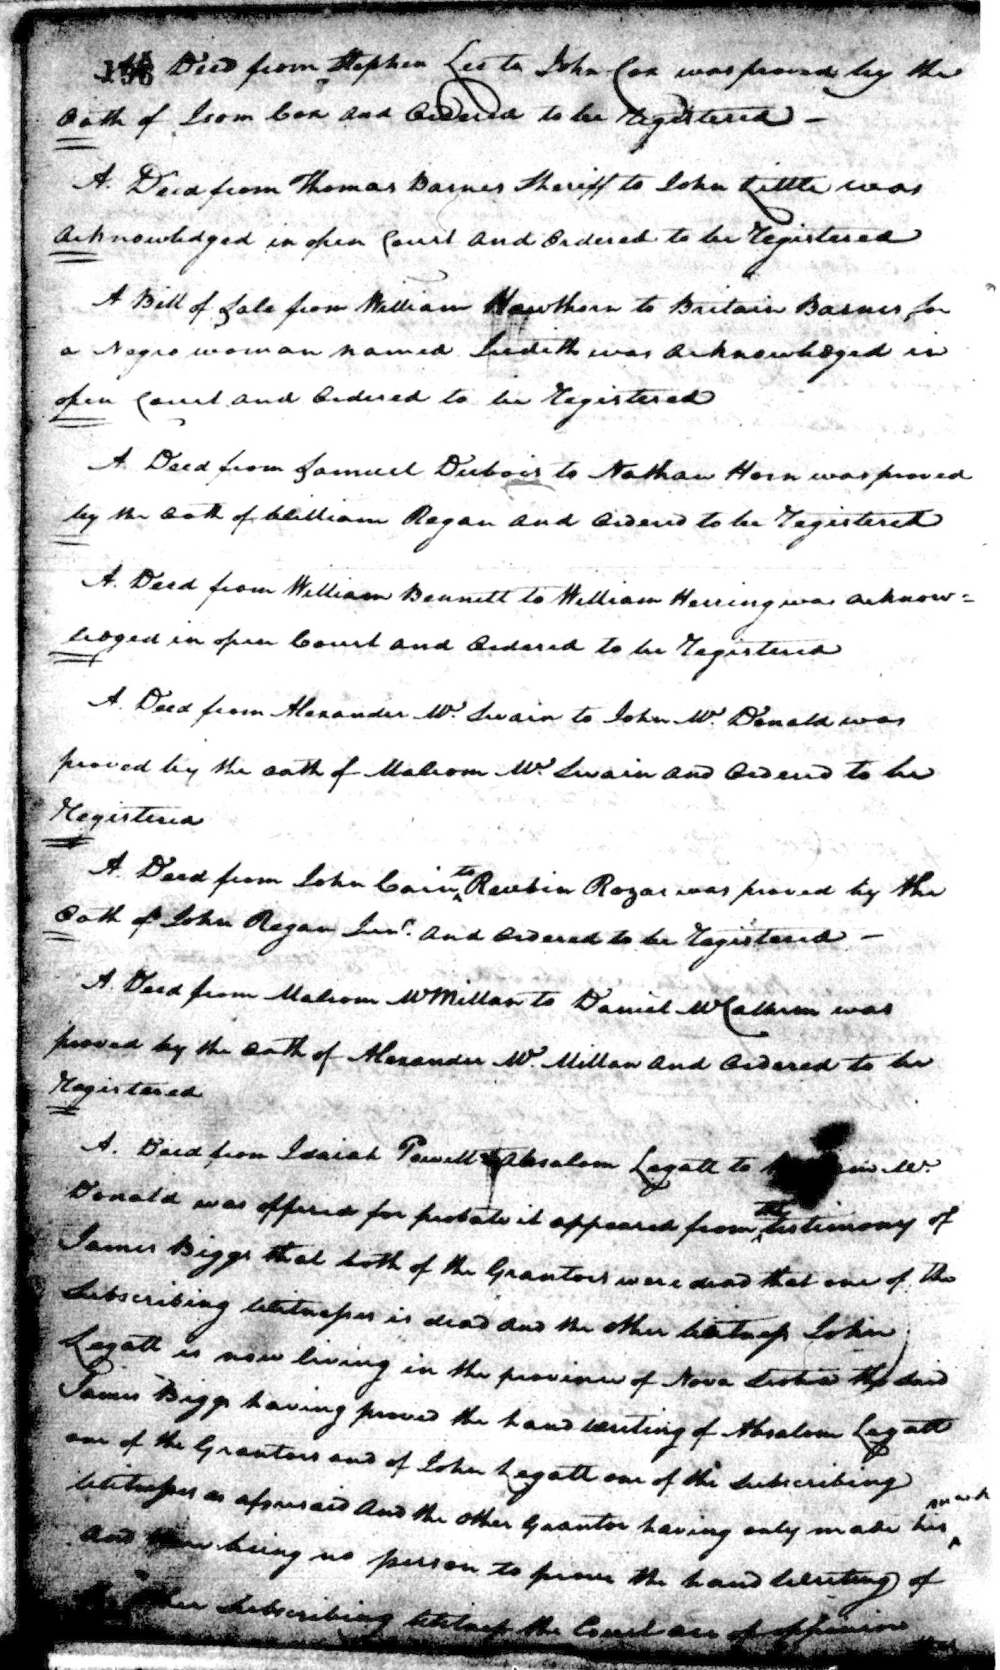 A Deed from Stephen Lee to John Cox was proved by the
Oath of Isom Cox and Ordered to be Registered —
A Deed from Thomas Barnes Sheriff to John Little was
acknowledged in open Court and Ordered to be Registered
A Bill of Sale from William Hawthorn to Britain Barnes for
a Negro woman named Judith was acknowledged in
open Court and Ordered to be Registered
A Deed from Samuel Dubois to Nathan Horn was proved
by the Oath of William Regan and Ordered to be Registered
A Deed from William Bennett to William Herring was acknow=
ledged in open Court and Ordered to be Registered
A Deed from Alexander Mc Swain to John Mc Donald was
proved by the oath of Malcom Mc Swain and Ordered to be
Registered
A Deed from John Cain to Reubin Rozar was proved by the
Oath of John Regan Junr. and Ordered to be Registered —
A Deed from Malcom McMillan to Daniel McCallum was
proved by the Oath of Alexander Mc Millan and Ordered to be
Registered
A Deed from Isaiah Powell & Absalom Legatt to Mc
Donald was offered for probate it appeared from the testimony of
James Biggs that both of the Grantors were dead that one of the
Subscribing Witnesses is dead and the other Witness John
Legatt is now living in the province of Nova Scotia the said
James Biggs having proved the hand writing of Absalom Legatt
one of the Grantors and of John Legatt one of the Subscribing
Witnesses as aforesaid and the other Grantor having only made his mark
and there being no person to prove the hand Writing of
the other Subscribing Witness the Court are of opinion